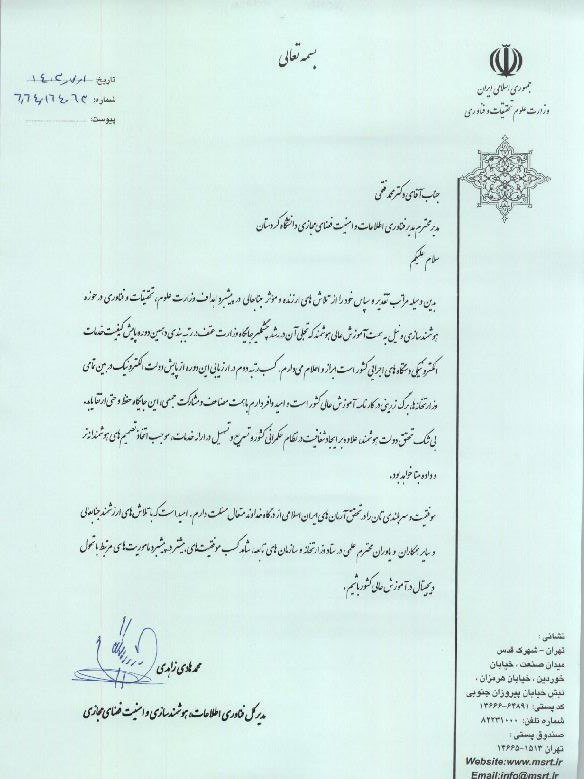 بسمه تعالی
جمهوری اسلامی ایران
وزارت علوم تحقیقات و فناوری
تاریخ
شماره:
پیوست:
جناب آقای دکتر محمد فتحی
مدیر محترم مدیر فناوری اطلاعات و امنیت فضای مجازی دانشگاه کردستان
سلام علیکم
بدین وسیله مراتب تقدیر و سپاس خود را از تلاش های ارزنده و مؤثر جنابعالی در پیشبرد اهداف وزارت علوم، تحقیقات و فناوری در حوزه
هوشمندسازی و نیل به سمت آموزش عالی هوشمند که تجلی آن در رشد چشمگیر جایگاه وزارت عتف در رتبه بندی دهمین دوره پایش کیفیت خدمات
الکترونیکی دستگاه های اجرایی کشور است ابراز و اعلام می دارم. کسب رتبه دوم در ارزیابی این دوره از پایش دولت الکترونیک در بین تمامی
وزارتخانه ها، برگ زرینی در کارنامه آموزش عالی کشور است و امید وافر دارم با همت مضاعف و مشارکت جمعی، این جایگاه حفظ و حتی ارتقا یابد.
بی شک تحقق دولت هوشمند، علاوه بر ایجاد شفافیت در نظام حکمرانی کشور و تسریع و تسهیل در ارائه خدمات، موجب اتخاذ تصمیم های هوشمندانه تر
و داده مبنا خواهد بود.
موفقیت و سربلندی تان را در تحقق آرمان های ایران اسلامی از درگاه خداوند متعال مسئلت دارم. امید است که با تلاش های ارزشمند جنابعالی
و سایر همکاران و یاوران محترم علمی در ستاد وزارتخانه و سازمان های تابعه، شاهد کسب موفقیت های بیشتر در پیشبرد ماموریت های مرتبط با تحول
دیجیتال در آموزش عالی کشور باشیم.
محمد هادی زاهدی
مدیر کل فناوری اطلاعات، هوشمندسازی و امنیت فضای مجازی
نشانی :
تهران - شهرک قدس
میدان صنعت ، خیابان
خوردین ، خیابان هرمزان ،
نبش خیابان پیروزان جنوبی
کد پستی: ۶۴۸۹۱-۱۴۶۶۶
شماره تلفن: ۸۲۲۳۱۰۰۰
صندوق پستی :
تهران ۱۵۱۳-۱۴۶۶۵
Website:www.msrt.ir
Email:info@msrt.ir